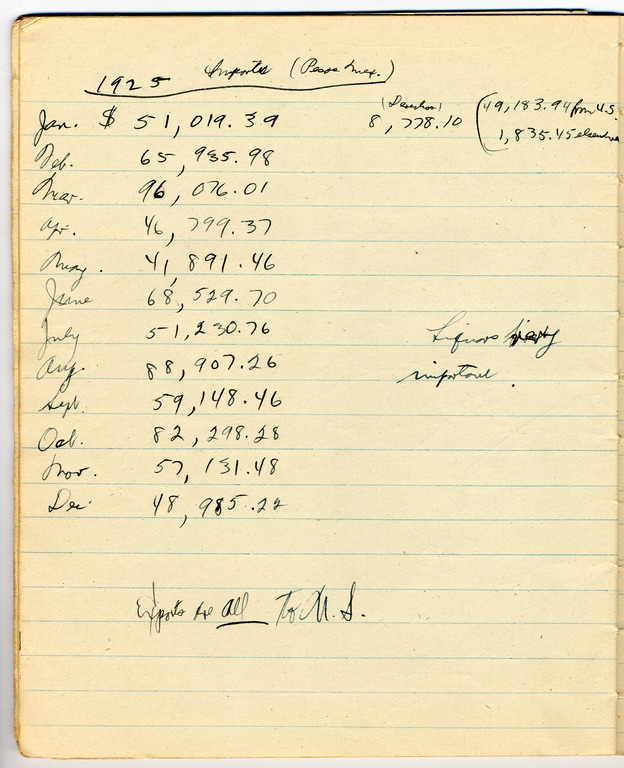 1925 Imports (Pesos Mex.)
Jan. $ 51,019.39 (Derechos) 8,778.10 (49,183.94 from U.S.
1,835.45 elsewhere
Feb. 65,935.98
Mar. 96,076.01
Apr. 46,799.37
May. 41,891.46
June 68,529.70
July 51,230.76
Aug. 88,907.26
Sept. 59,148.46
Oct. 82,298.28
Nov. 57,131.48
Dec. 48,985.22
Liquors very
important.
Exports are all to U.S.